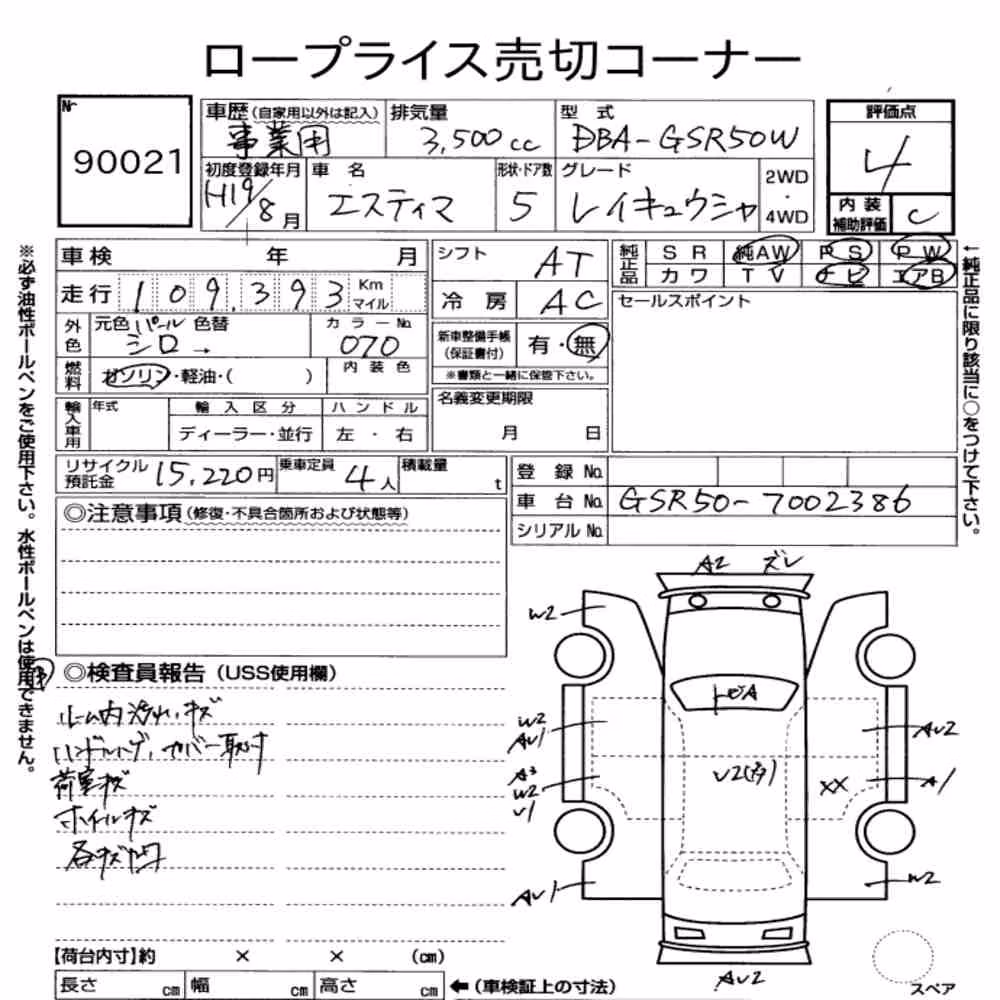 ロープライス売切コーナー
№
90021
車歴(自家用以外は記入)
事業用
排気量
3,500cc
型 式
DBA-GSR50W
評価点
4
初度登録年月
H19/8月
車 名
エスティマ
形状・ドア数
5
グレード
レイキュウシャ
2WD
・
4WD
内 装
補助評価
C
※必ず油性ボールペンをご使用下さい。水性ボールペンは使用できません。
車検 年 月
走行 109,393 Km マイル
外色
元色 パール 色替
シロ→
カラーNo.
070
燃料
ガソリン・軽油・( )
内 装 色
輸入車用
年式
輸 入 区 分
ディーラー・並行
ハ ン ド ル
左 ・ 右
シフト
AT
冷 房
AC
新車整備手帳
(保証書付)
有・無
※書類と一緒に保管下さい。
名義変更期限
月 日
純正品
S R 純AW P S P W
カワ T V ナビ エアB
セールスポイント
←純正品に限り該当に○をつけて下さい。
リサイクル
預託金
15,220円
乗車定員
4人
積載量
t
登 録 No.
車 台 No.
GSR50-7002386
シリアル No.
◎注意事項(修復・不具合箇所および状態等)
◎検査員報告(USS使用欄)
ルーム内汚れ、キズ
ハンドルハゲ、カバー取付
荷室キズ
ホイルキズ
各キズ凹
A2 ズレ
W2
トビA
W2
AU1
AU2
A3
W2
U1
U2(多)
XX
A1
AU1
W2
AU2
スペア
【荷台内寸】約 × × (cm)
長さ cm 幅 cm 高さ cm
←(車検証上の寸法)